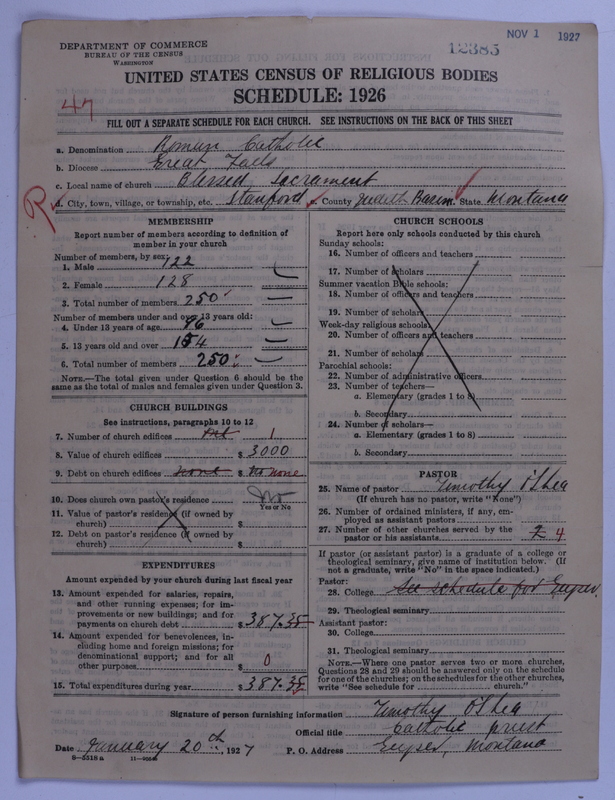 NOV 1 1927
12385
DEPARTMENT OF COMMERCE
BUREAU OF THE CENSUS
WASHINGTON
UNITED STATES CENSUS OF RELIGIOUS BODIES
SCHEDULE: 1926
47
FILL OUT A SEPARATE SCHEDULE FOR EACH CHURCH. SEE INSTRUCTIONS ON THE BACK OF THIS SHEET
a. Denomination Roman Catholic
b. Diocese Great Falls
c. Local name of church Blessed Sacrament
R
d. City, town, village, or township, etc. Stanford County Judith Basin State Montana
MEMBERSHIP
Report number of members according to definition of
member in your church
Number of members, by sex:
1. Male 122
2. Female 128
3. Total number of members 250
Number of members under and over 13 years old:
4. Under 13 years of age 96
5. 13 years old and over 154
6. Total number of members 250
NOTE.—The total given under Question 6 should be the
same as the total of males and females given under Question 3.
CHURCH BUILDINGS
See instructions, paragraphs 10 to 12
7. Number of church edifices 1
8. Value of church edifices $ 3000
9. Debt on church edifices none $ No none
10. Does church own pastor's residence No
Yes or No
11. Value of pastor's residence (if owned by
church) $
12. Debt on pastor's residence (if owned by
church) $
EXPENDITURES
Amount expended by your church during last fiscal year
13. Amount expended for salaries, repairs,
and other running expenses; for im-
provements or new buildings; and for
payments on church debt $ 387.35
14. Amount expended for benevolences, in-
cluding home and foreign missions; for
denominational support; and for all
other purposes $ 0
15. Total expenditures during year $ 387.35
CHURCH SCHOOLS
Report here only schools conducted by this church
Sunday schools:
16. Number of officers and teachers
17. Number of scholars
Summer vacation Bible schools:
18. Number of officers and teachers
19. Number of scholars
Week-day religious schools:
20. Number of officers and teachers
21. Number of scholars
Parochial schools:
22. Number of administrative officers
23. Number of teachers—
a. Elementary (grades 1 to 8)
b. Secondary
24. Number of scholars—
a. Elementary (grades 1 to 8)
b. Secondary
PASTOR
25. Name of pastor Timothy O'Shea
(If church has no pastor, write "None")
26. Number of ordained ministers, if any, em-
ployed as assistant pastors
27. Number of other churches served by the
pastor or his assistants 2 4
If pastor (or assistant pastor) is a graduate of a college or
theological seminary, give name of institution below. (If
not a graduate, write "No" in the space indicated.)
Pastor:
28. College See schedule for Geyser
29. Theological seminary
Assistant pastor:
30. College
31. Theological seminary
NOTE.—Where one pastor serves two or more churches,
Questions 28 and 29 should be answered only on the schedule
for one of the churches; on the schedules for the other churches,
write "See schedule for church."
Signature of person furnishing information Timothy O'Shea
Official title Catholic priest
Date January 20th 1927 P. O. Address Geyser, Montana
8-5518a